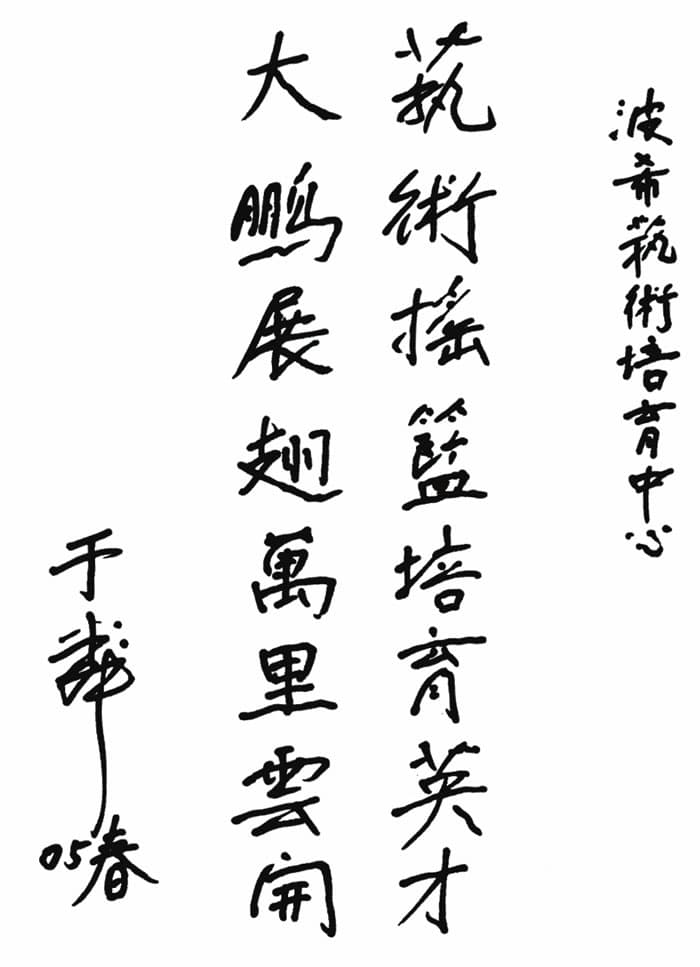 波希藝術培育中心
藝術搖籃培育英才
大鵬展翅萬里雲開
于
05春